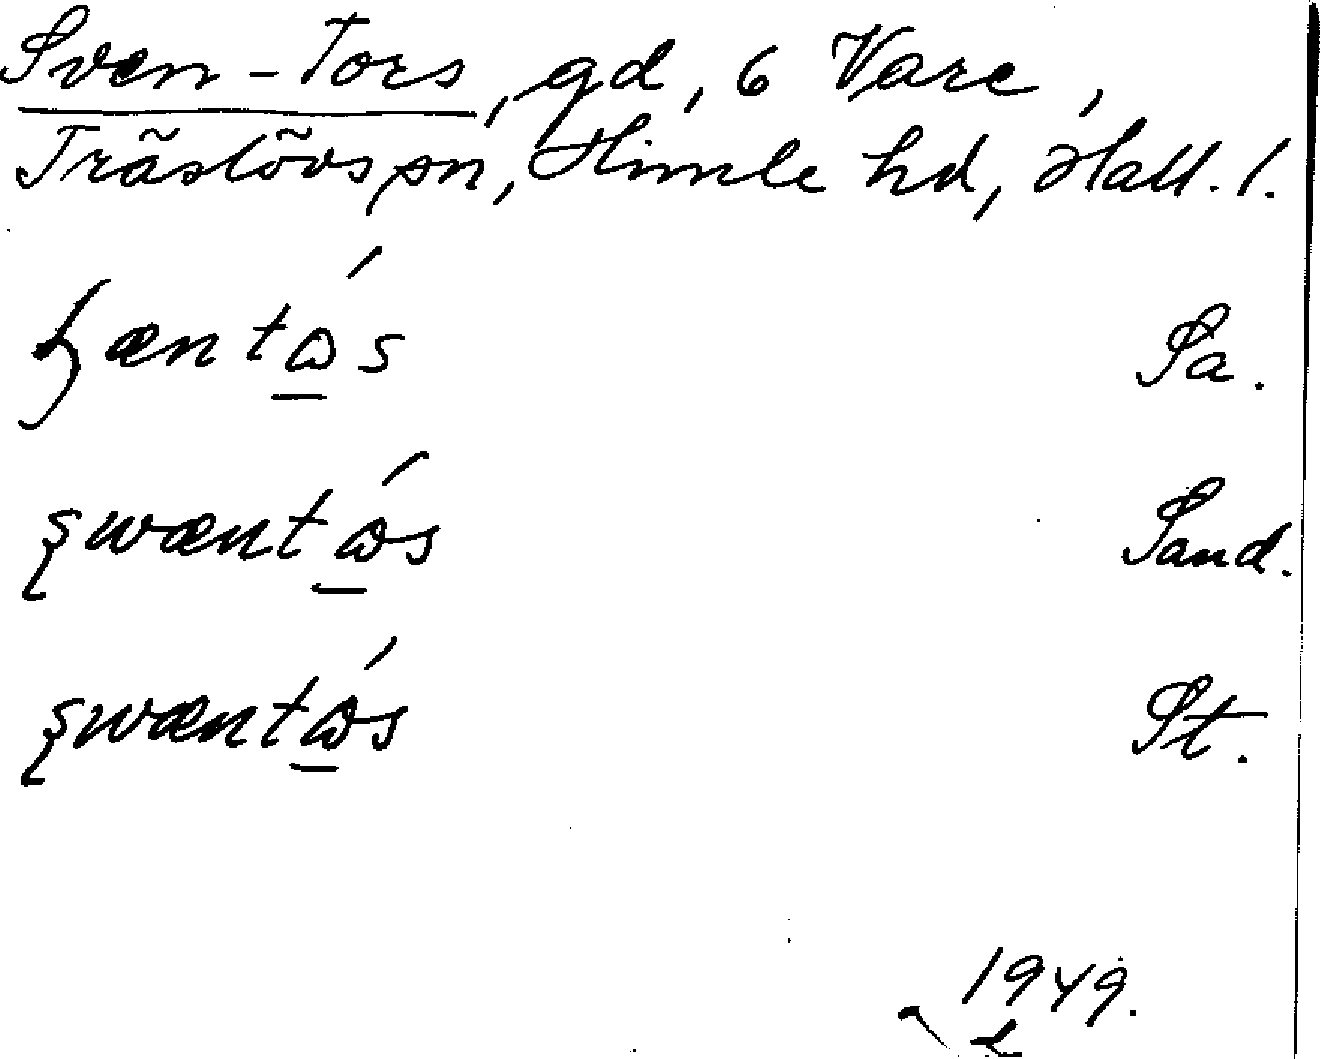 Sven-Tors, gd, 6 Vare,
Träslövs sn, Himle hd, Hall. l.
Sa.
swæntɷ́s Sand.
swæntɷ́s St.
1949.